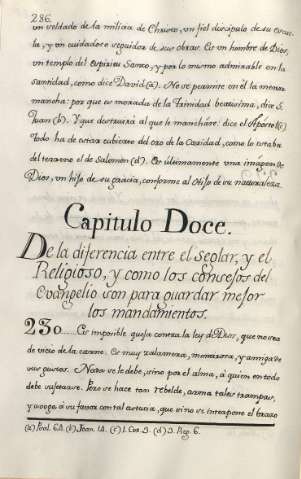 286
un soldado de la milicia de Christo, un fiel discipulo de su escue
la, y un cuidadoso seguidor de sus obras. Es un hombre de Dios,
un templo del Espiritu Santo, y por lo mismo admirable en la
santidad, como dice David (a). No se permite en él la menor
mancha: por que es morada de la Trinidad beatisima, dice S.
Juan (b). Y que destruirá al que le manchare: dice el Apostol (c)
Todo ha de estar cubierto del oro de la Caridad, como lo estaba
del terreno el de Salomón (d). Es ultimamente una imagen de
Dios, un hijo de su gracia, conforme al Hijo de su naturaleza.
Capitulo Doce.
De la diferencia entre el Seglar, y el
Religioso, y como los consejos del
Evangelio son para guardar mejor
los mandamientos.
230. Es imposible queja contra la ley de Dios, que no sea
de vicio de la carne. Es muy zalamera, monera, y amiga de
sus gustos. No se le debe, sino por el alma, á quien en todo
debe sujetarse. Pero se hace tan rebelde, arma tales trampas,
y voga á su favor con tal astucia, que si no se interpone el brazo
(a) Psal. 64. (b) Joan. 14. (c) 1. Cor. 3. (d) 3. Reg. 6.